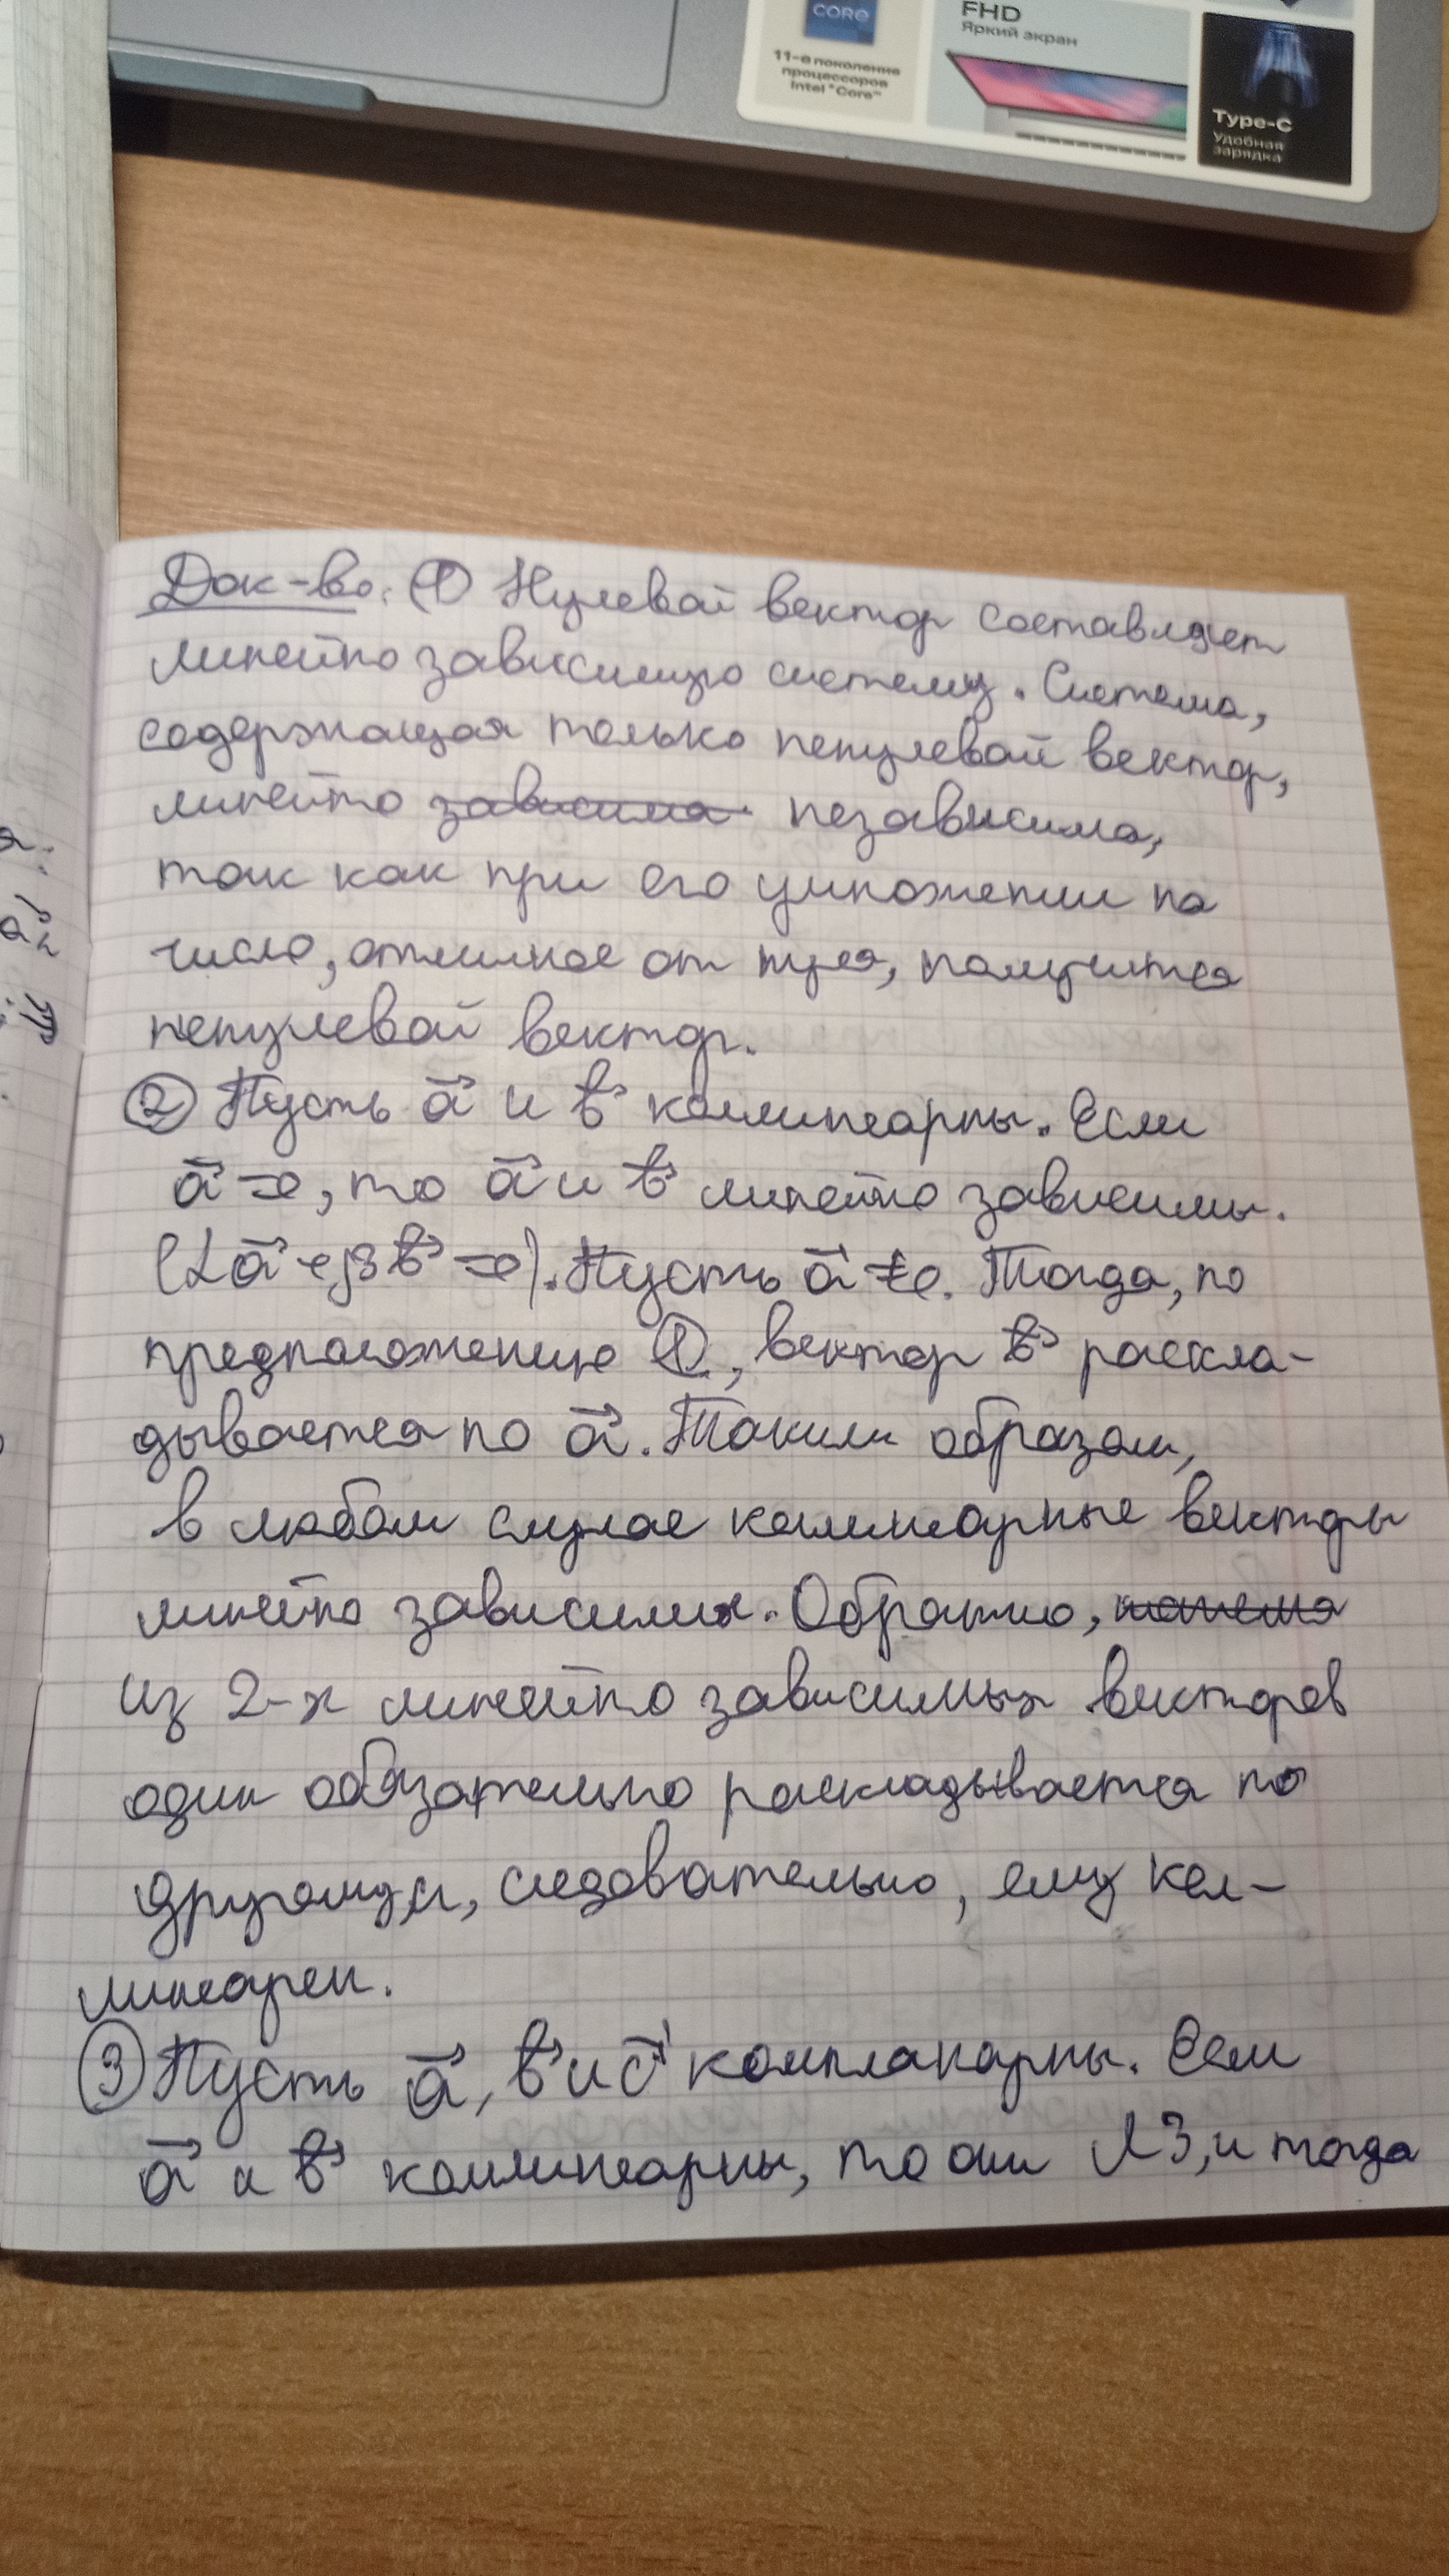 CORE
11-е поколение
процессоров
Intel® Core™
FHD
Яркий экран
Type-C
Удобная
зарядка
Док-во: ① Нулевой вектор составляет
линейно зависимую систему. Система,
содержащая только ненулевой вектор,
линейно зависима независима,
так как при его умножении на
число, отличное от нуля, получится
ненулевой вектор.
② Пусть a⃗ и b⃗ коллинеарны. Если
a⃗ = 0, то a⃗ и b⃗ линейно зависимы.
(αa⃗ + βb⃗ = 0). Пусть a⃗ ≠ 0. Тогда, по
предположению ①, вектор b⃗ раскла-
дывается по a⃗. Таким образом,
в любом случае коллинеарные векторы
линейно зависимы. Обратно,
из 2-х линейно зависимых векторов
один обязательно раскладывается по
другому, следовательно, ему кол-
линеарен.
③ Пусть a⃗, b⃗ и c⃗ компланарны. Если
a⃗ и b⃗ коллинеарны, то они ЛЗ, и тогда